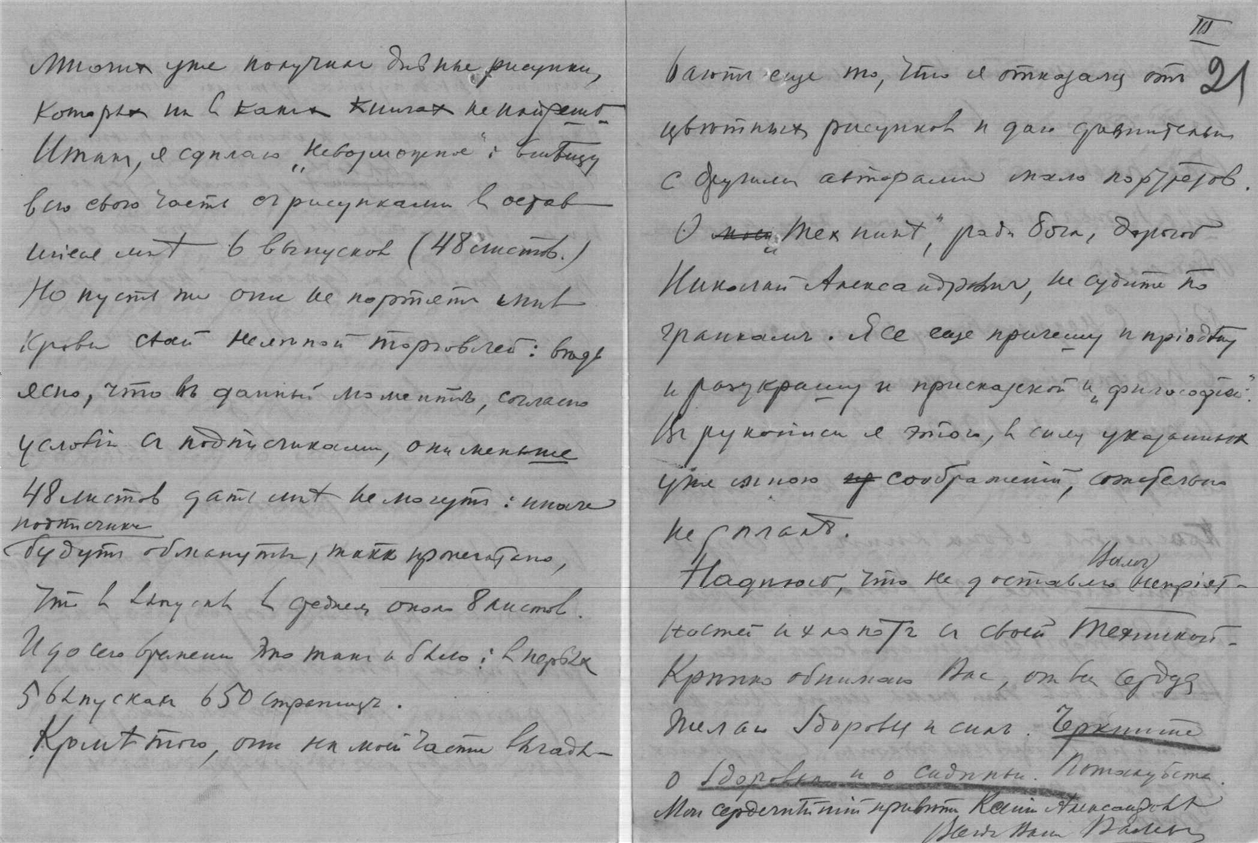 многих уже получил дивные рисунки,
которых ни в каких книгах не найдешь.
Итак, я сделаю „невозможное": втисну
всю свою часть с рисунками в остав
шиеся мнѣ 6 выпусков (48 листов.)
Но пусть же они не портят мнѣ
крови своей нелепой торговлей: ведь
ясно, что въ данный моментъ, согласно
условій съ подписчиками, они меньше
48 листов дать мнѣ не могутъ: иначе
подписчики
будутъ обмануты, такъ пропечатано,
что в выпуске в среднем около 8 листов.
И до сего времени это так и было: в первых
5 выпусках 650 страницъ.
Кромѣ того, они на моей части выгады-
III
21
вают еще то, что я отказался отъ
цвѣтных рисунков и даю сравнительно
с другими авторами мало портретов.
О „Техникѣ", ради бога, дорогой
Николай Александрович, не судите по
гранкамъ. Я все еще причешу и пріодѣну
и разукрашу и присказкой и „философіей".
В рукописи я этого, в силу указанных
уже мною соображеній, сознательно
не дѣлаю.
Надѣюсь, что не доставлю Вамъ непріят-
ностей и хлопотъ съ своей Техникой.
Крѣпко обнимаю Вас, от всего сердца
желаю здоровья и силъ. Черкните
о здоровьи и о сидѣньи. Пожалуйста.
Мой сердечнѣйшій привѣтъ Ксеніи Александровнѣ
Весь Ваш